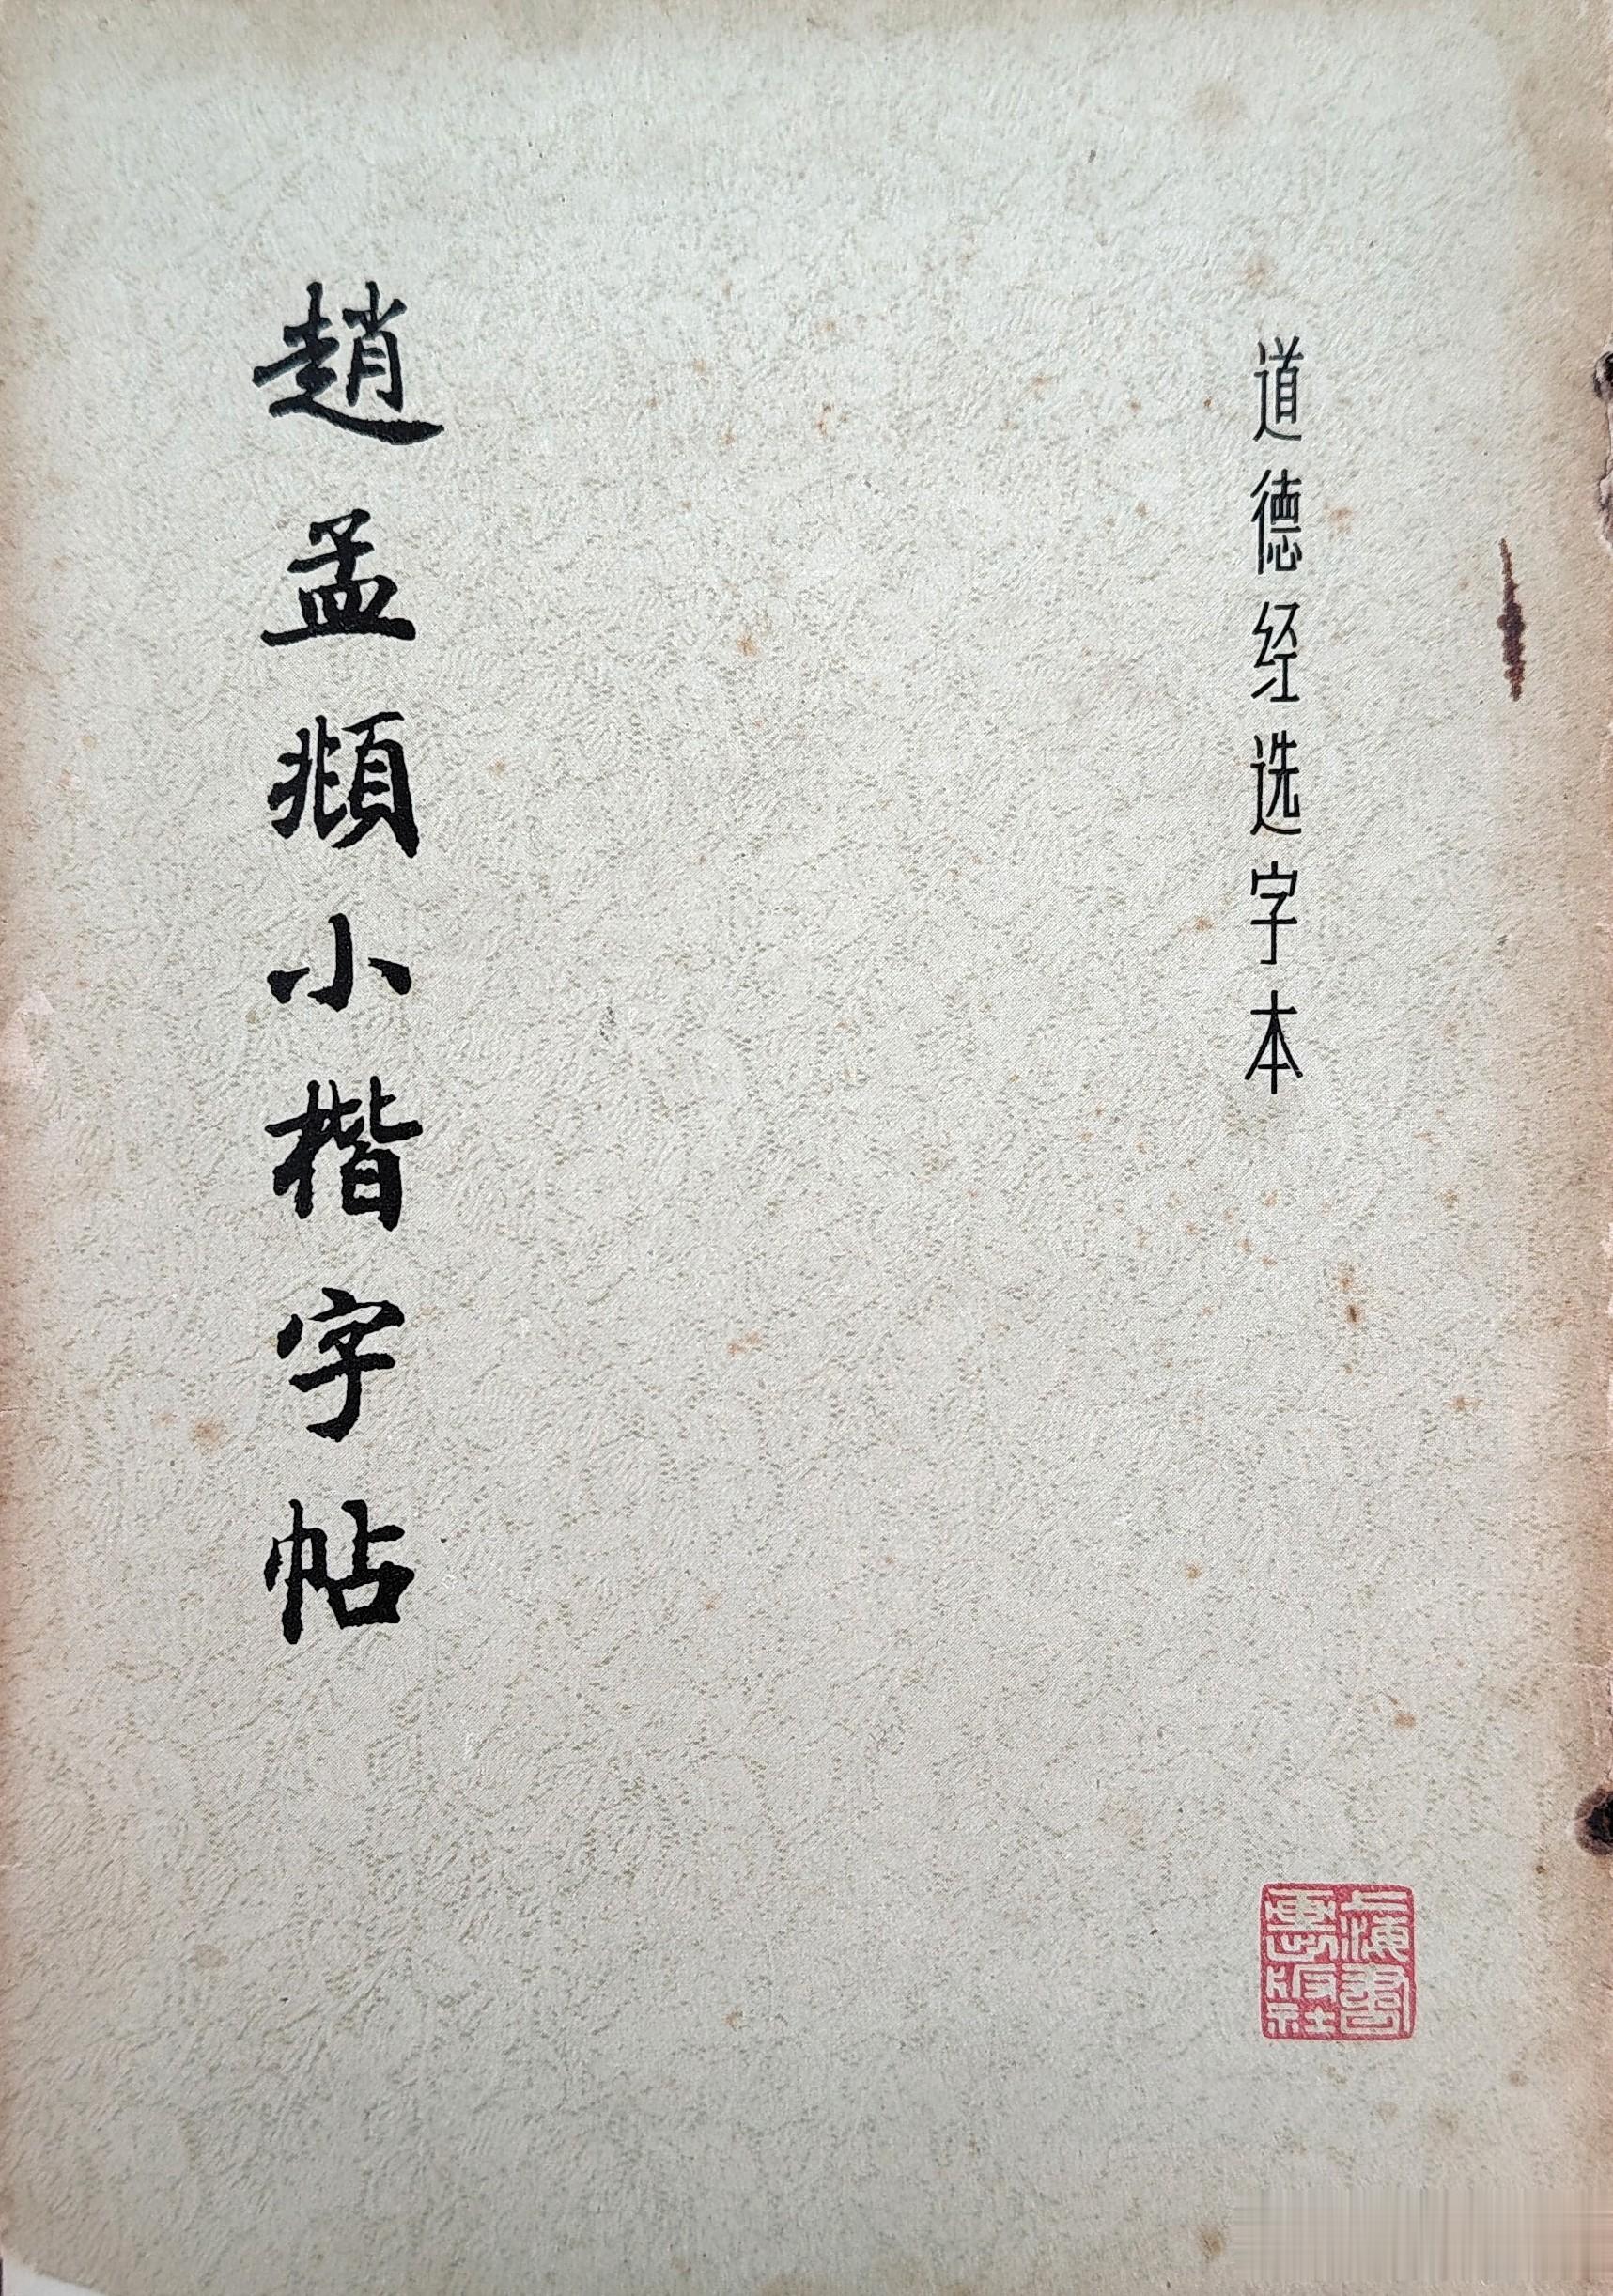 道德经选字本
趙孟頫小楷字帖
上海書
画出版社